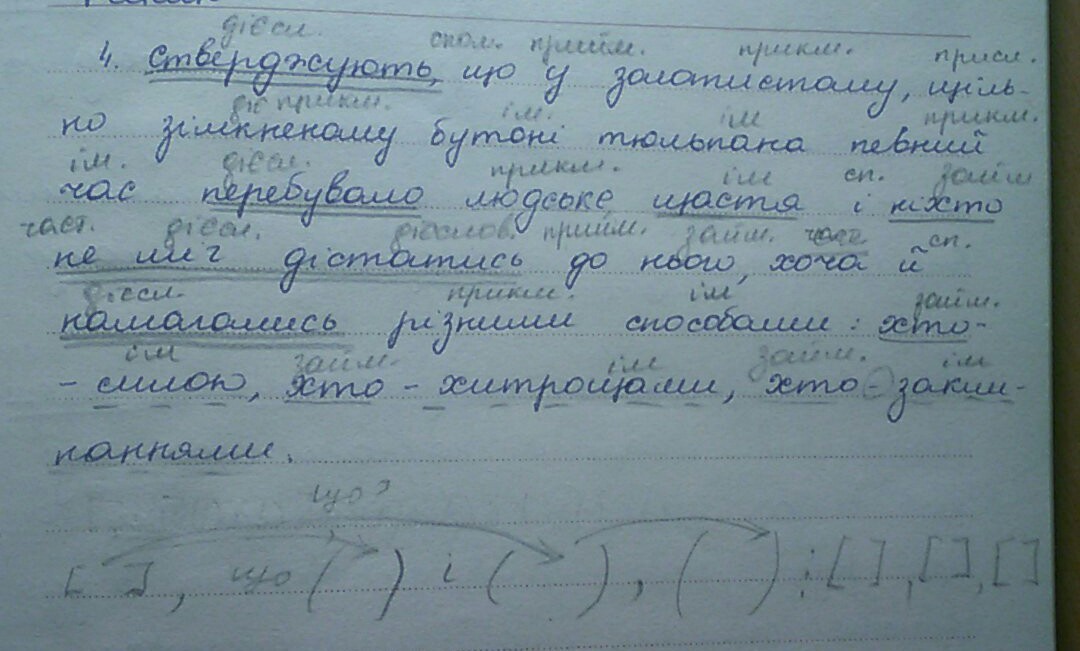 дієсл. спол. прийм. прикм. присл.
4. Стверджують, що у золотистому, щіль-
дієприкм. ім. ім прикм.
но зімкненому бутоні тюльпана певний
ім. дієсл. прикм. ім сп. займ
час перебувало людське щастя і ніхто
част. дієсл. дієслов. прийм. займ. част. сп.
не міг дістатись до нього, хоча й
дієсл. прикм. ім займ.
намагались різними способами: хто-
ім займ. ім займ. ім
- силою, хто - хитрощами, хто - закли-
наннями.
що?
[ ], що ( ) і ( ), ( ) : [ ], [ ], [ ]